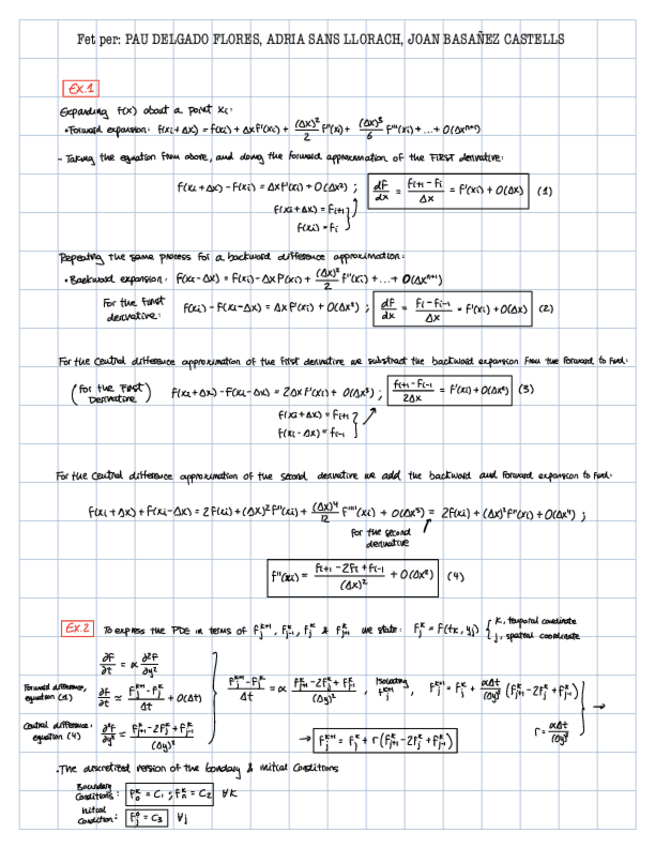 Fet per: PAU DELGADO FLORES, ADRIA SANS LLORACH, JOAN BASAÑEZ CASTELLS
Ex.1
Expanding f(x) about a point xi:
• Forward expansion: f(xi+Δx) = f(xi) + Δx f'(xi) + (Δx)²/2 f''(xi) + (Δx)³/6 f'''(xi) + ... + O(Δxⁿ⁺¹)
- Taking the equation from above, and doing the forward approximation of the FIRST derivative:
f(xi+Δx) - f(xi) = Δx f'(xi) + O(Δx²) ; dF/dx = (fi+1 - fi)/Δx = f'(xi) + O(Δx) (1)
f(xi+Δx) = fi+1
f(xi) = fi
Repeating the same process for a backward difference approximation:
• Backward expansion: f(xi-Δx) = f(xi) - Δx f'(xi) + (Δx)²/2 f''(xi) + ... + O(Δxⁿ⁺¹)
For the first derivative: f(xi) - f(xi-Δx) = Δx f'(xi) + O(Δx²) ; dF/dx = (fi - fi-1)/Δx = f'(xi) + O(Δx) (2)
For the central difference approximation of the first derivative we substract the backward expansion from the forward to find:
(for the FIRST Derivative) f(xi+Δx) - f(xi-Δx) = 2Δx f'(xi) + O(Δx³) ; (fi+1 - fi-1)/2Δx = f'(xi) + O(Δx²) (3)
f(xi+Δx) = fi+1
f(xi-Δx) = fi-1
For the central difference approximation of the second derivative we add the backward and forward expansion to find:
f(xi+Δx) + f(xi-Δx) = 2f(xi) + (Δx)² f''(xi) + (Δx)⁴/12 f''''(xi) + O(Δx⁵) = 2f(xi) + (Δx)² f''(xi) + O(Δx⁴) ;
for the second derivative
f''(xi) = (fi+1 - 2fi + fi-1)/(Δx)² + O(Δx²) (4)
Ex.2 To express the PDE in terms of fj^k+1, fj-1^k, fj^k & fj+1^k we state: fj^k = f(tk, yj) { k, temporal coordinate
j, spatial coordinate
∂f/∂t = α ∂²f/∂y²
Forward difference, equation (1) ∂f/∂t ≈ (fj^k+1 - fj^k)/Δt + O(Δt)
Central difference, equation (4) ∂²f/∂y² ≈ (fj+1^k - 2fj^k + fj-1^k)/(Δy)²
(fj^k+1 - fj^k)/Δt = α (fj+1^k - 2fj^k + fj-1^k)/(Δy)² , Isolating fj^k+1 , fj^k+1 = fj^k + αΔt/(Δy)² (fj+1^k - 2fj^k + fj-1^k) →
→ fj^k+1 = fj^k + r(fj+1^k - 2fj^k + fj-1^k) r = αΔt/(Δy)²
• The discretized version of the bondary & initial Conditions
Boundary Conditions: f0^k = C1 ; fn^k = C2 ∀k
Initial Condition: fj^0 = C3 ∀j